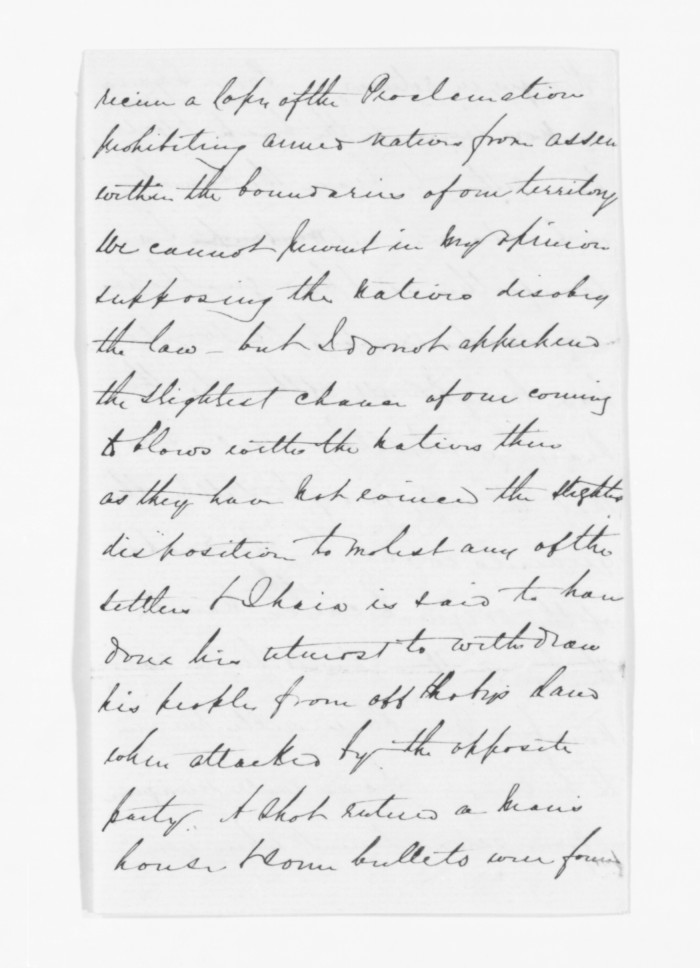 receive a Copy of the Proclamation
prohibiting armed natives from assem
within the boundaries of our territory
We cannot prevent in my opinion
supposing the natives disobey
the law – but I do not apprehend
the slightest chance of our coming
to blows with the natives then
as they have not evinced the slightest
disposition to molest any of the
settlers & Ihaia is said to have
done his utmost to withdraw
his people from off land
when attacked by the opposite
party. A shot entered a man's
house & some bullets were found